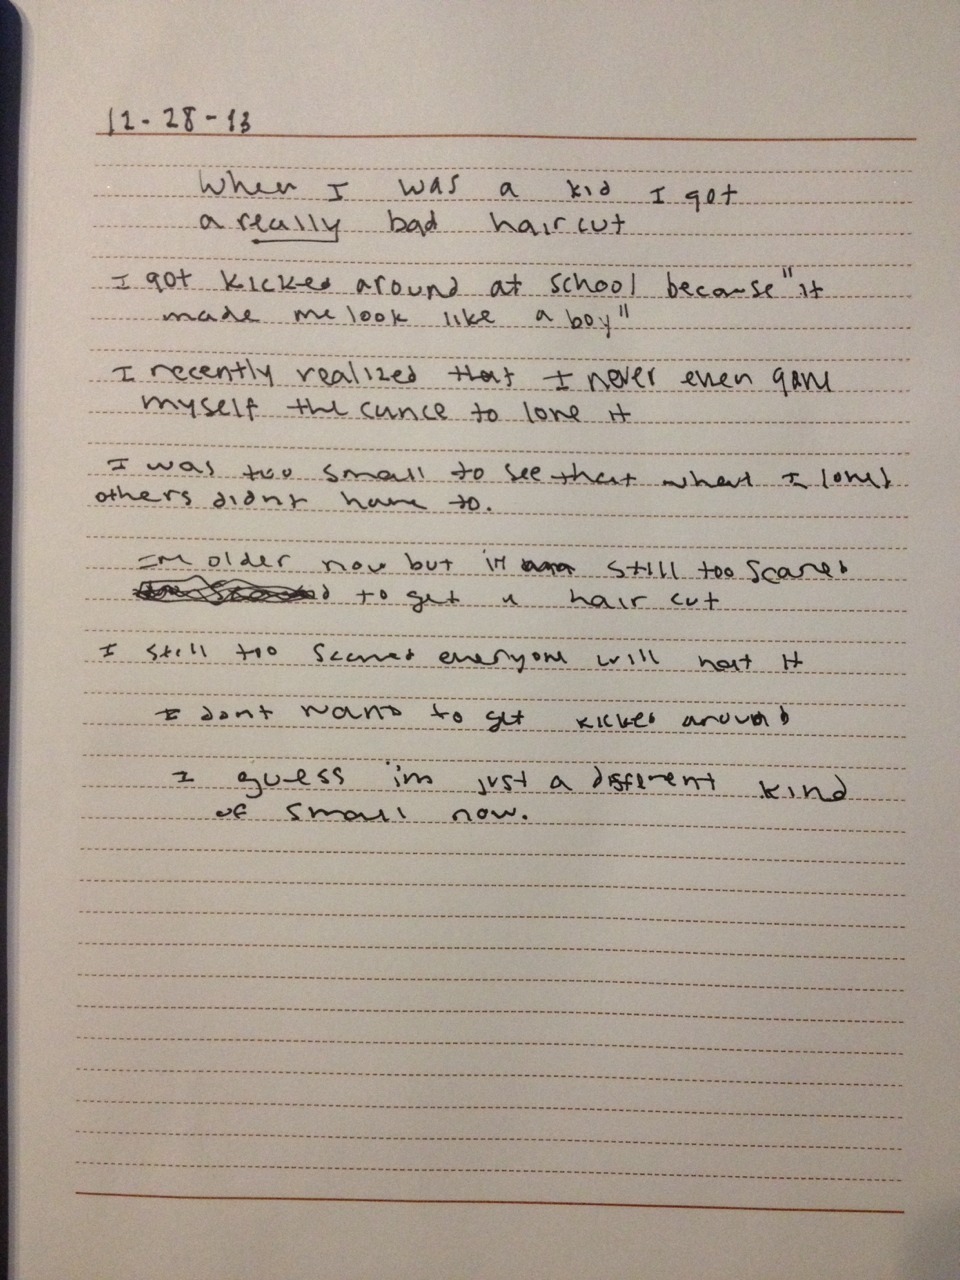 12-28-13
When I was a kid I got
a really bad haircut
I got kicked around at school because "it
made me look like a boy"
I recently realized that I never even gave
myself the cance to love it
I was too small to see that what I loved
others didnt have to.
Im older now but im still too scared
to get a hair cut
I still too scared everyone will hate it
I dont want to get kicked around
I guess im just a different kind
of small now.